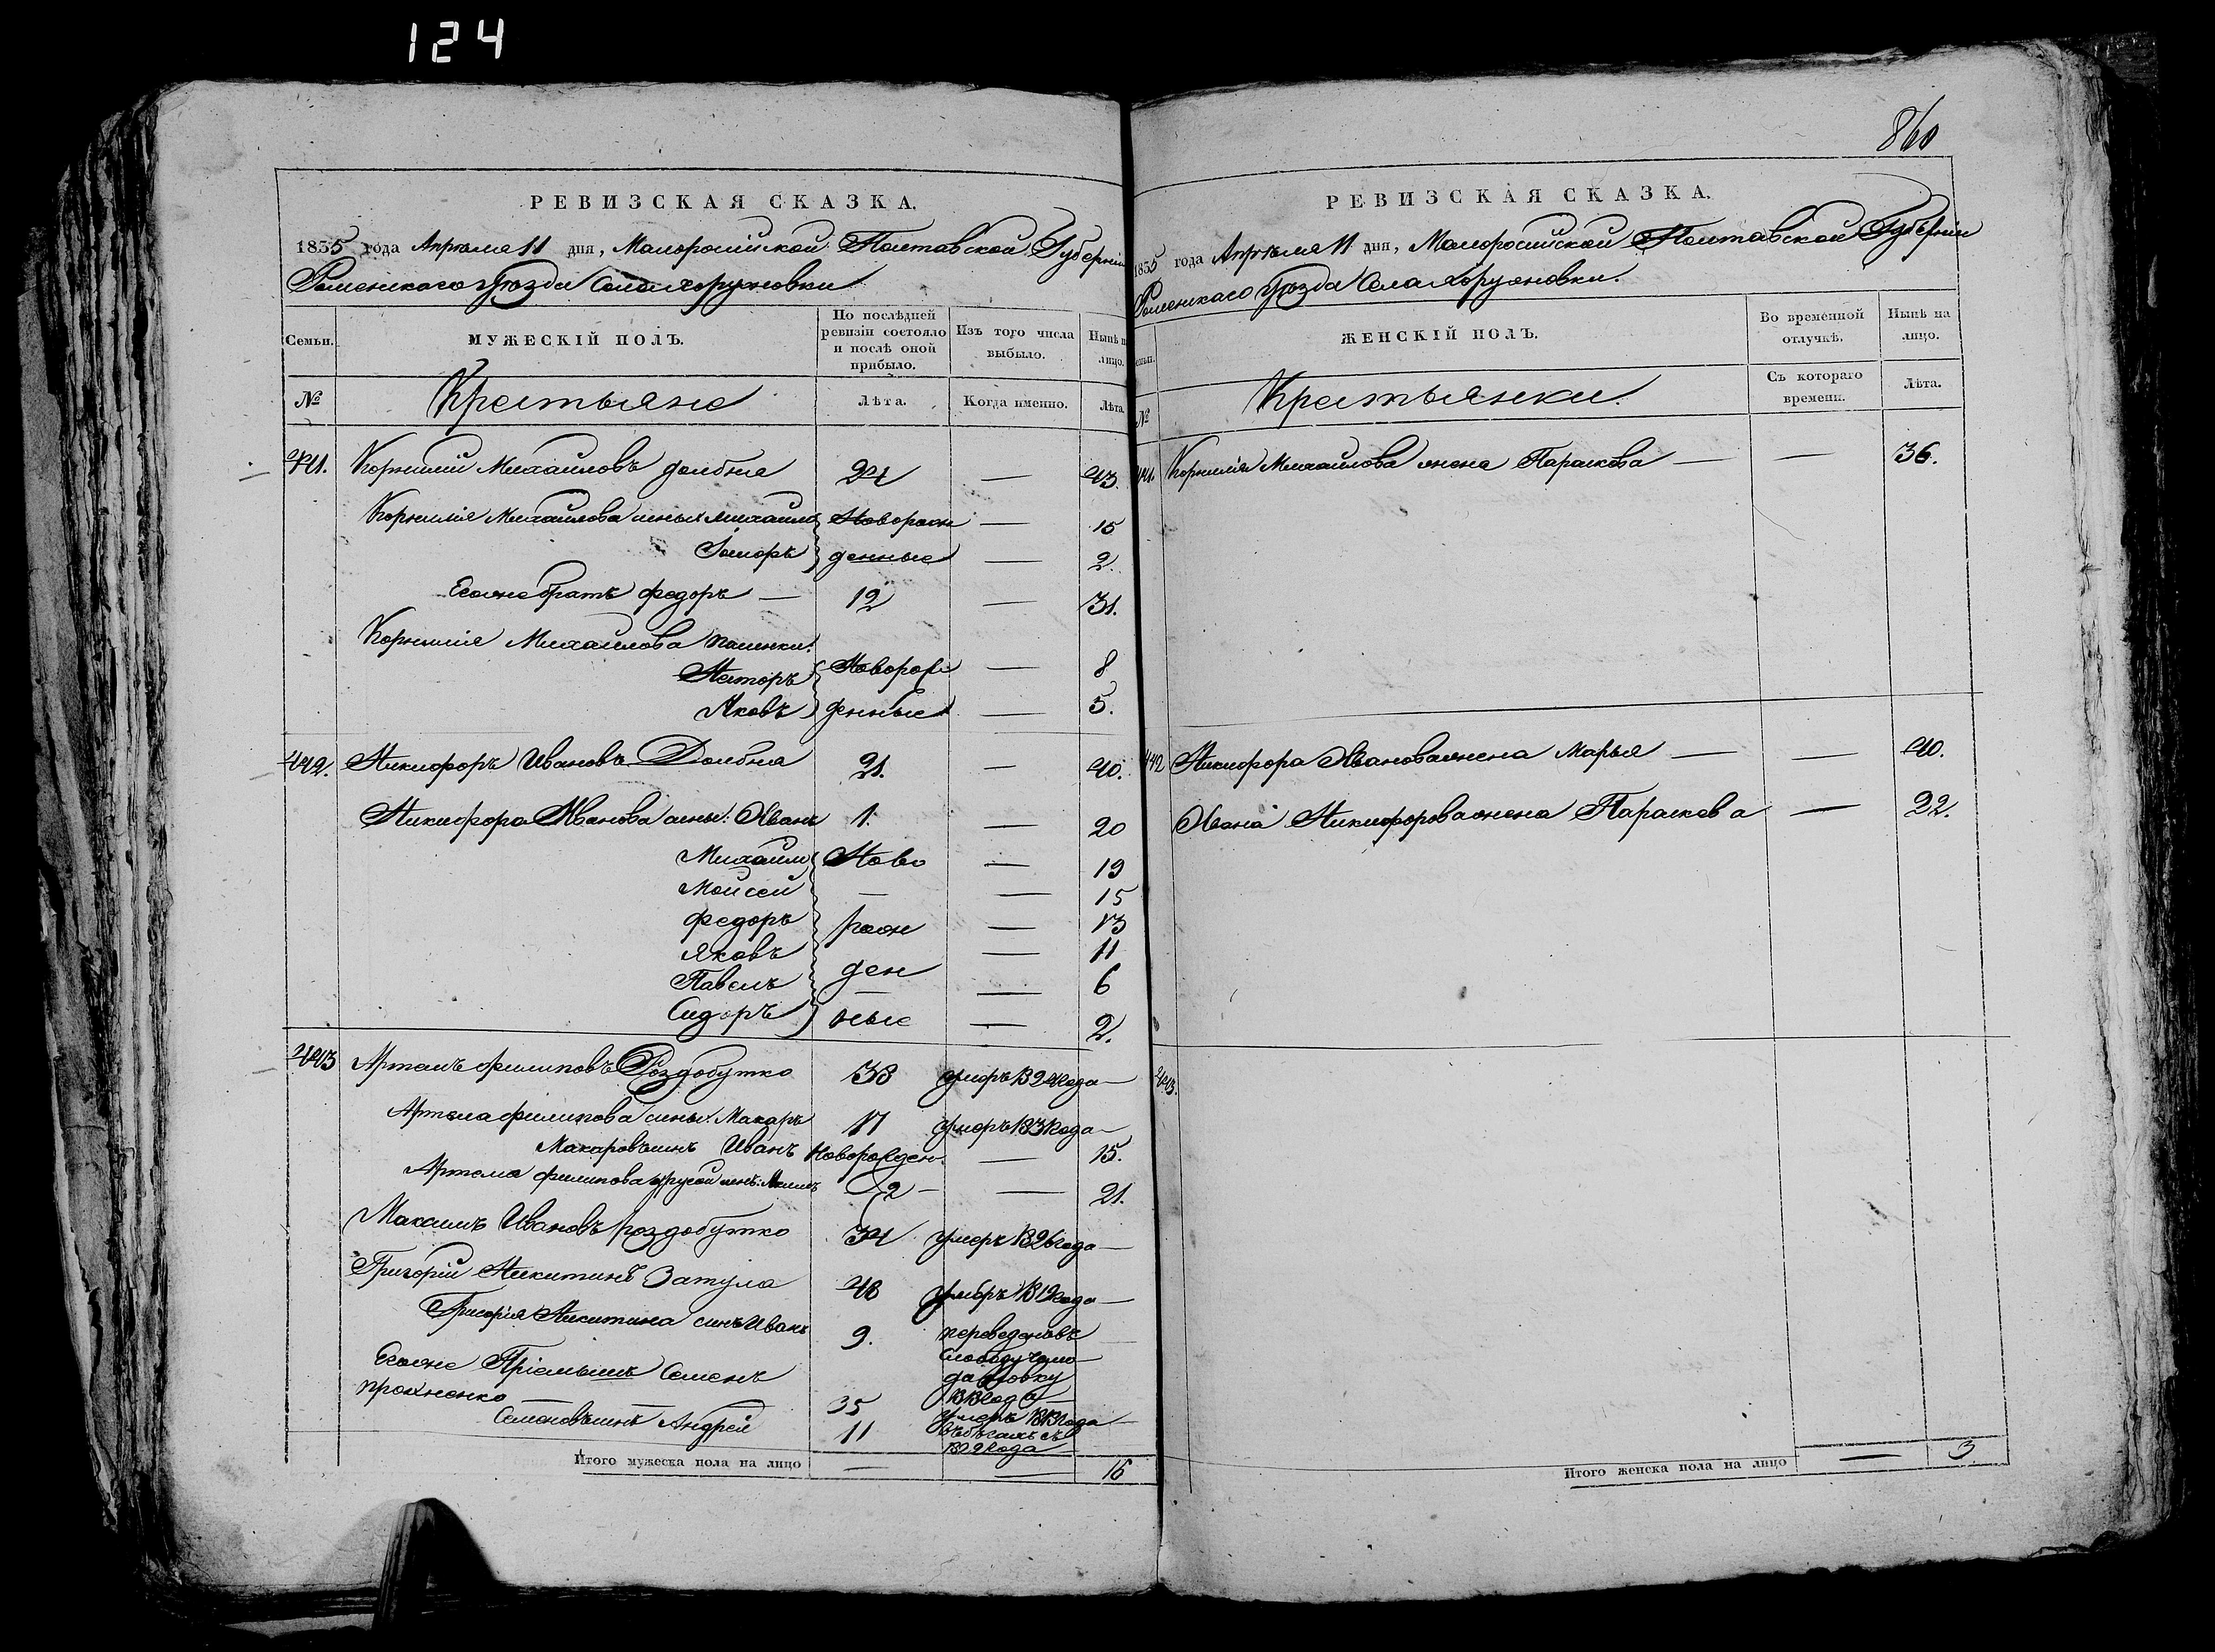 124
860
РЕВИЗСКАЯ СКАЗКА.
1835 года Апреля 11 дня, Малоросійской Полтавской Губерніи
Роменскаго уѣзда Села Хоружовки
Семьи. МУЖЕСКІЙ ПОЛЪ. По послѣдней ревизіи состояло и послѣ оной прибыло. Изъ того числа выбыло. Нынѣ на лицо.
№ Крестьяне Лѣта. Когда именно. Лѣта.
441. Корнилій Михайловъ Долбня 24 — 43.
Корнилія Михайлова сыны: Михайло Новорож — 15
денные — 2.
Егоже братъ Федоръ — 12 — 31.
Корнилія Михайлова
Несторъ Новорож — 8
Яковъ денные — 5.
442. Никифоръ Ивановъ Долбня 21. — 40.
Никифора Иванова сыны: Иванъ 1. — 20
Михаилъ Ново — 19
Мойсей — — 15
Федоръ рож — 13
Яковъ — 11
Павелъ ден — 6
Сидоръ ные — 2.
443 Артемъ Филиповъ Роздобутко 38 умеръ 1824 года —
Артема Филипова сыны: Макаръ 17 умеръ 1831 года —
Макаровъ сынъ Иванъ Новорожден. — 15.
Артема Филипова другой сынъ: 2 — — 21.
Максимъ Ивановъ Роздобутко 34 умеръ 1826 года —
Григорій Никитинъ Затула 48 умеръ 1819 года —
Григорія Никитина сынъ Иванъ 9. переведенъ въ
слободу
Егоже Пріемышъ Семенъ
35 умеръ года
Семеновъ сынъ Андрей 11
Итого мужеска пола на лицо — — 15
РЕВИЗСКАЯ СКАЗКА.
1835 года Апреля 11 дня, Малоросійской Полтавской Губерніи
Роменскаго уѣзда Села Хоружовки.
Семьи. ЖЕНСКІЙ ПОЛЪ. Во временной отлучкѣ. Нынѣ на лицо.
№ Крестьянки. Съ котораго времени. Лѣта.
441. Корнилія Михайлова жена Параскева — — 36.
442 Никифора Иванова жена Марья — — 40.
Ивана Никифорова жена Параскева — 22.
443.
Итого женска пола на лицо — 3